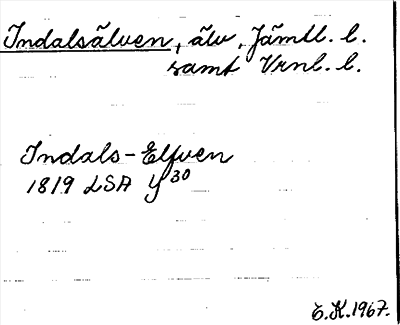 Indalsälven, älv, Jämtl. l.
samt Vrnl. l.
Indals-Elfven
1819 LSA Y30
E.K. 1967.